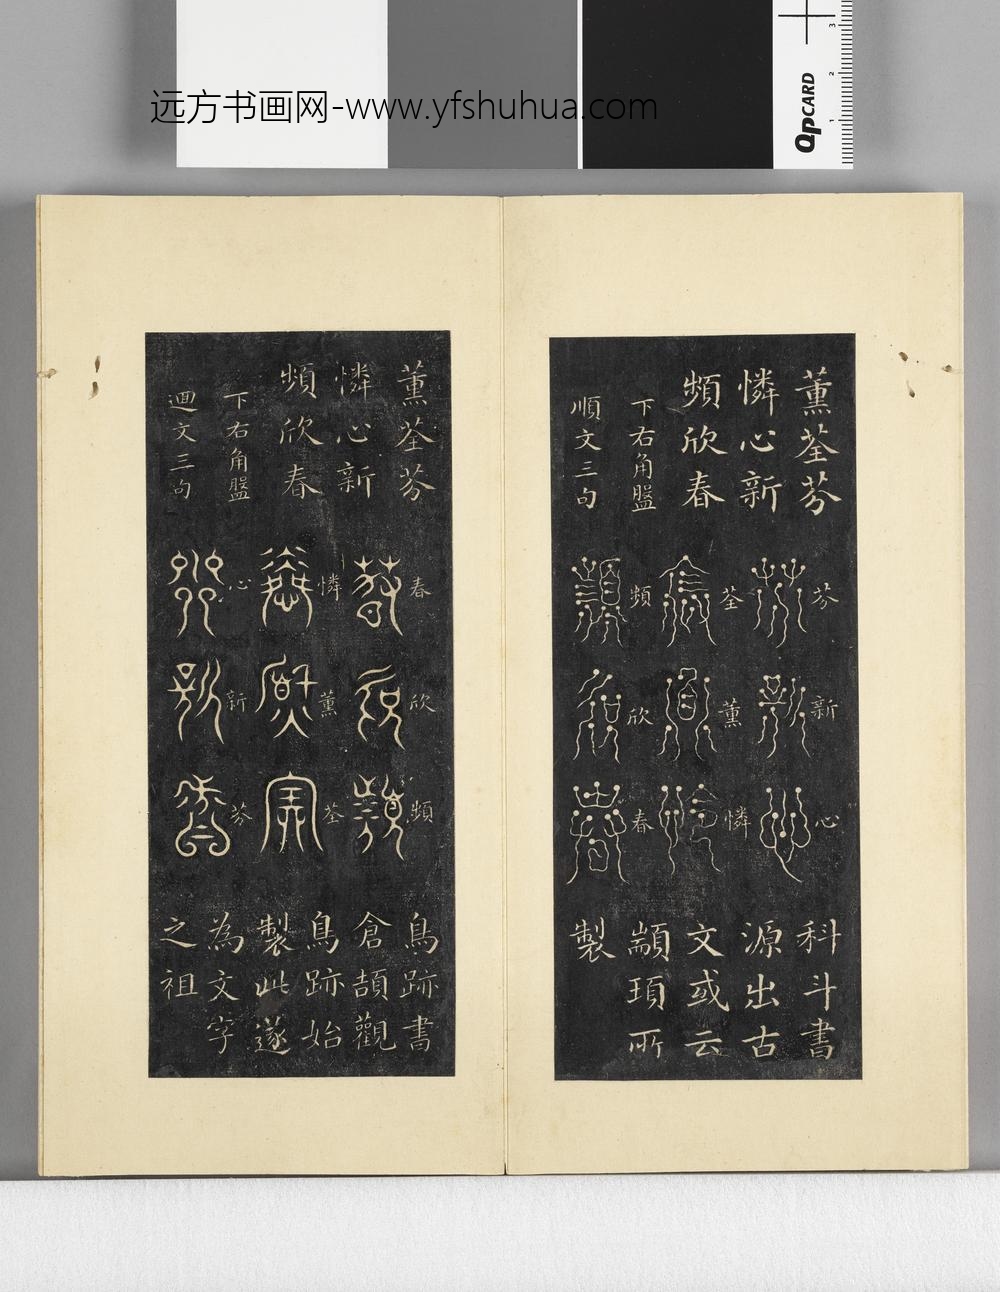 远方书画网-www.yfshuhua.com
QpCARD
1 2 3
薰荃芬
憐心新
頻欣春
下右角盤
順文三句
芬新心
荃薰憐
頻欣春
科斗書
源出古
文或云
顓頊所
製
薰荃芬
憐心新
頻欣春
下右角盤
迴文三句
春欣頻
憐薰荃
心新芬
鳥跡書
倉頡觀
鳥跡始
製此遂
為文字
之祖